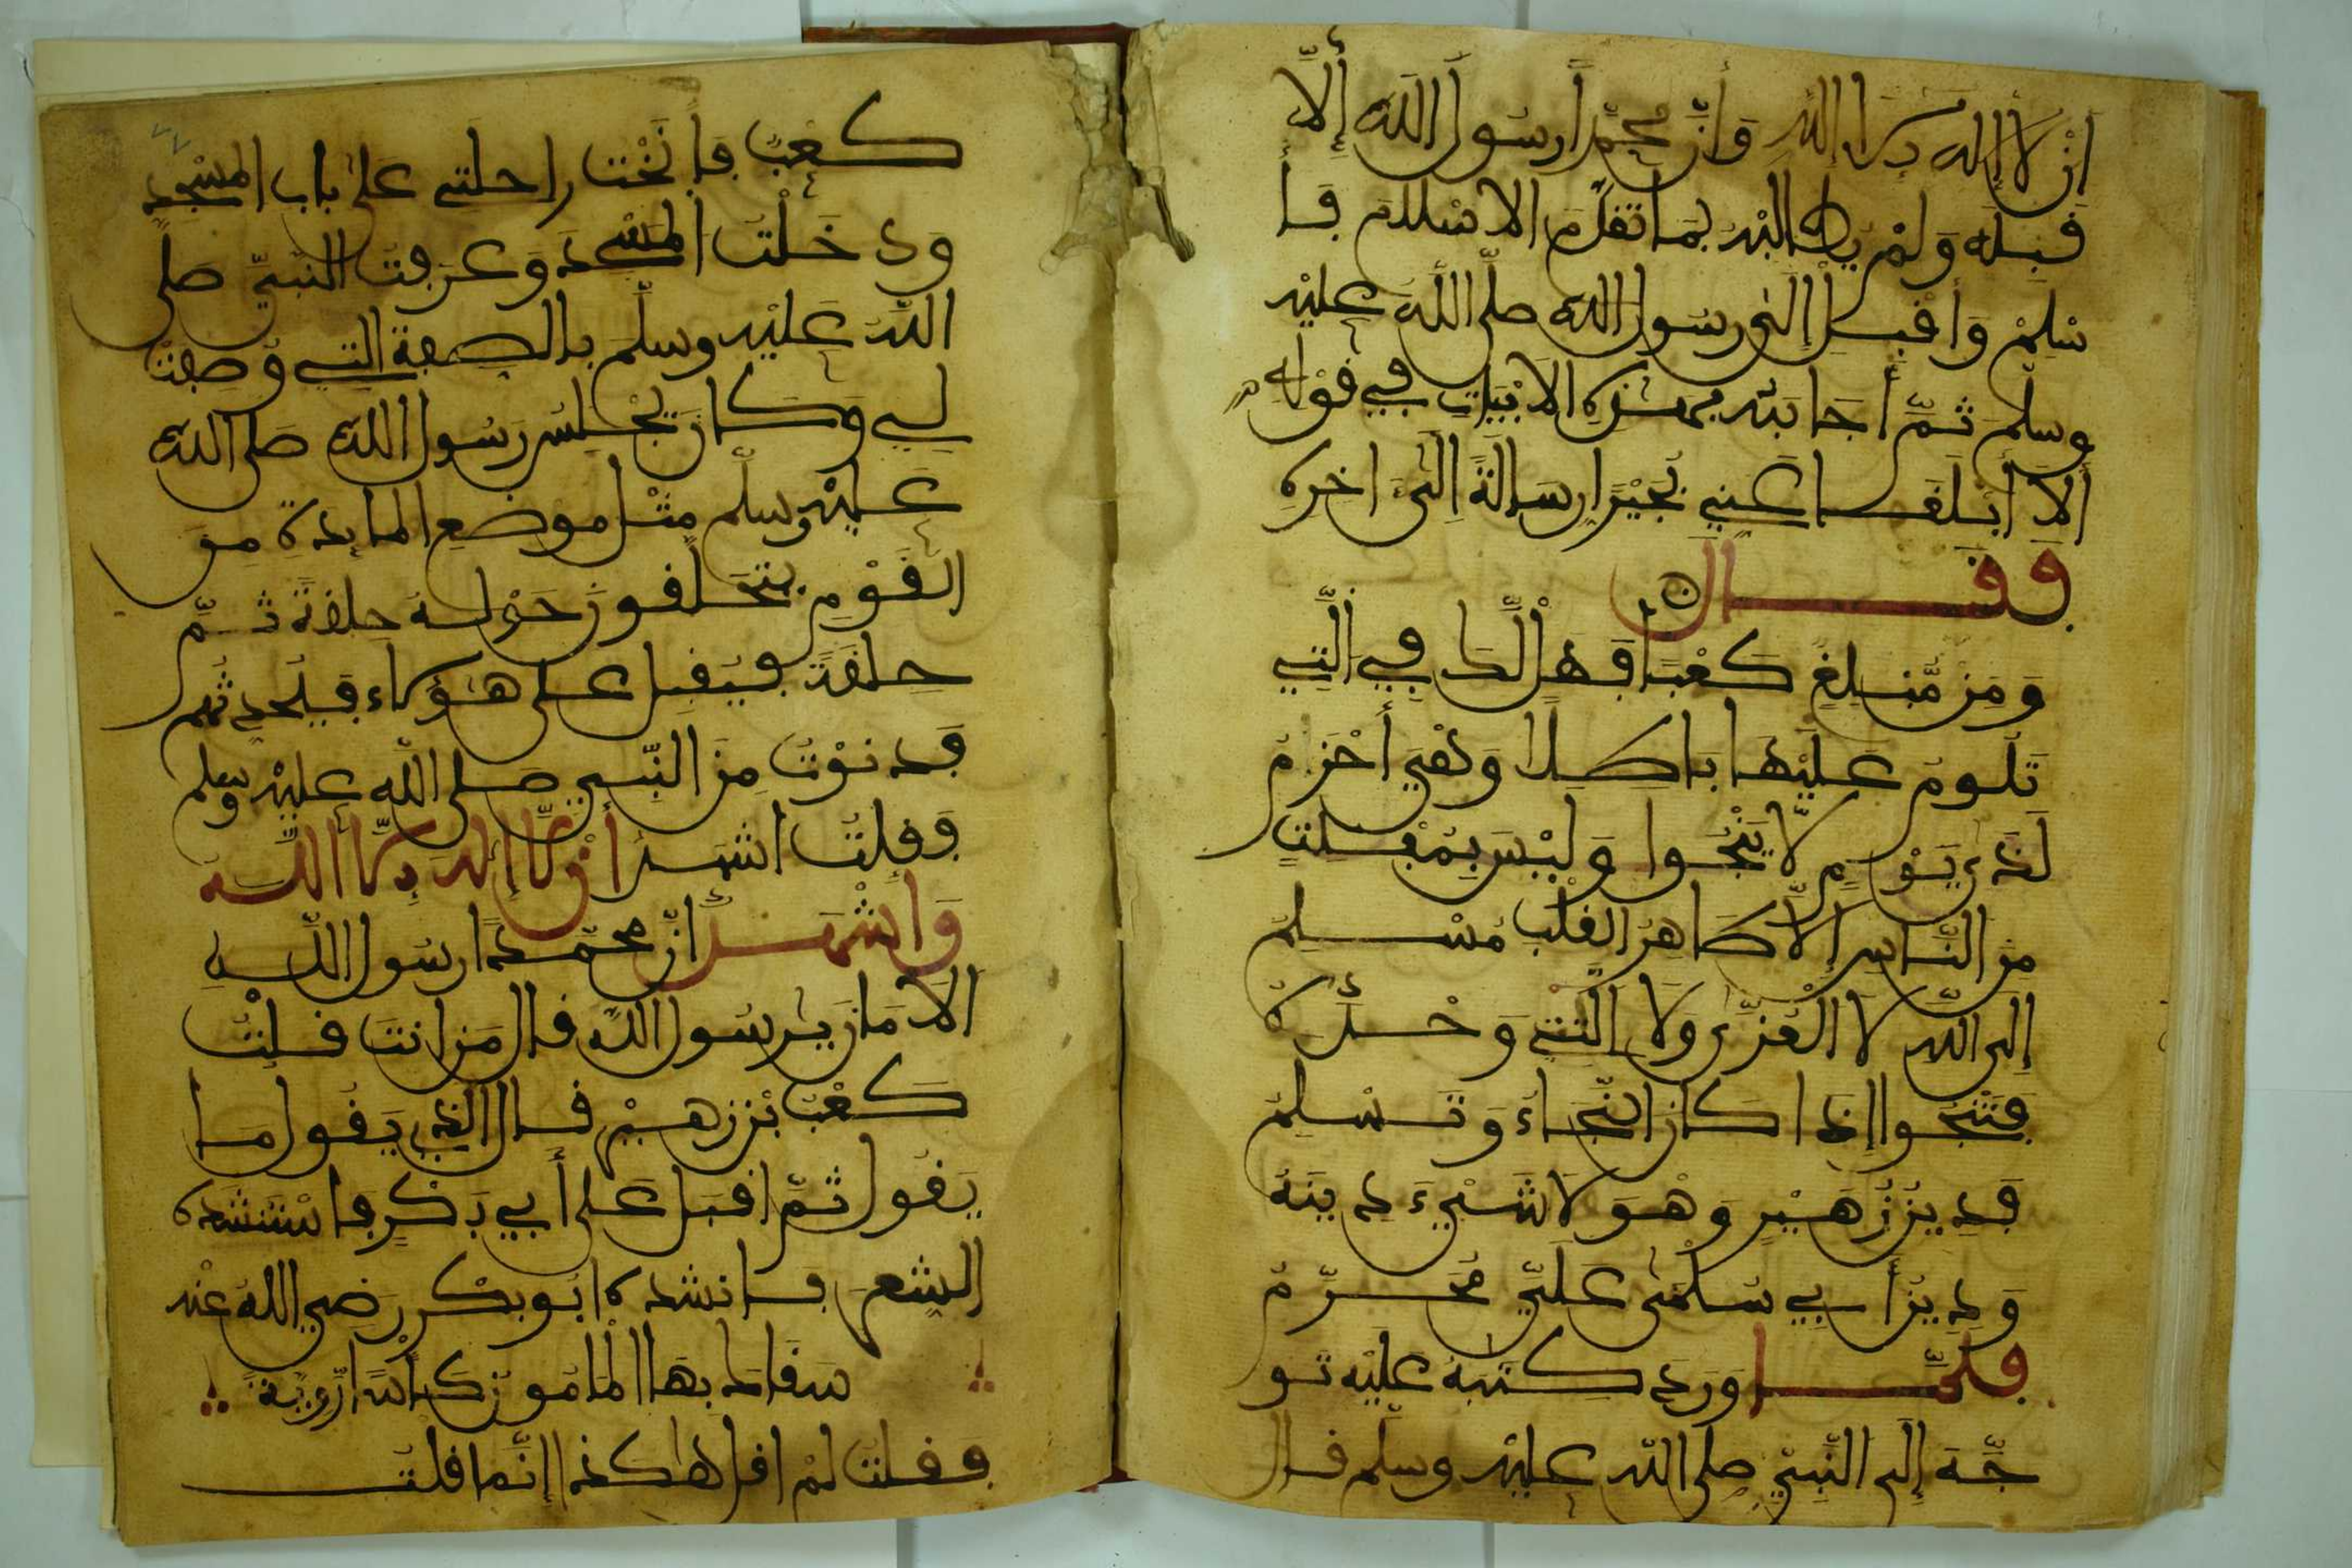 ان لا اله الا الله وان محمدا رسول الله الا
قبله ولم يطالبه بما تقدم الاسلام فأ
سلم واقبل الى رسول الله صلى الله عليه
وسلم ثم أجابته بهذه الابيات في قوله
ألا أبلغا عني بجيرا رسالة الى اخره
فقال
ومن مبلغ كعبا فهل لك في التي
تلوم عليها باطلا وهي أحزم
لذى يوم لا ينجوا وليس بمفلت
من الناس الا طاهر القلب مسلم
الى الله لا العزى ولا التى وحده
فتنجوا اذا كان النجاء وتسلم
فدين زهير وهو لا شيء دينه
ودين أبي سلمى علي محرم
فلما ورد كتبه عليه تو
جه الى النبي صلى الله عليه وسلم قال
كعب فأنخت راحلتي على باب المسجد
ودخلت المسجد وعرفت النبي صلى
الله عليه وسلم بالصفة التي وصفت
لي وكان يجلس رسول الله صلى الله
عليه وسلم مثل موضع المايدة من
القوم يتحلقون حوله حلقة ثم
حلقة فيقبل على هؤلاء فيحد ثهم
فدنوت من النبي صلى الله عليه وسلم
وقلت اشهد أن لا إله الا الله
واشهد ان محمدا رسول الله
الامان يرسول الله قال من انت قلت
كعب بن زهير قال الذي يقول ما
يقول ثم اقبل على أبي بكر فاستنشده
الشعر فانشده ابو بكر رضي الله عنه
سقاك بها المامون كأسا روية
فقلت لم اقل هكذا انما قلت